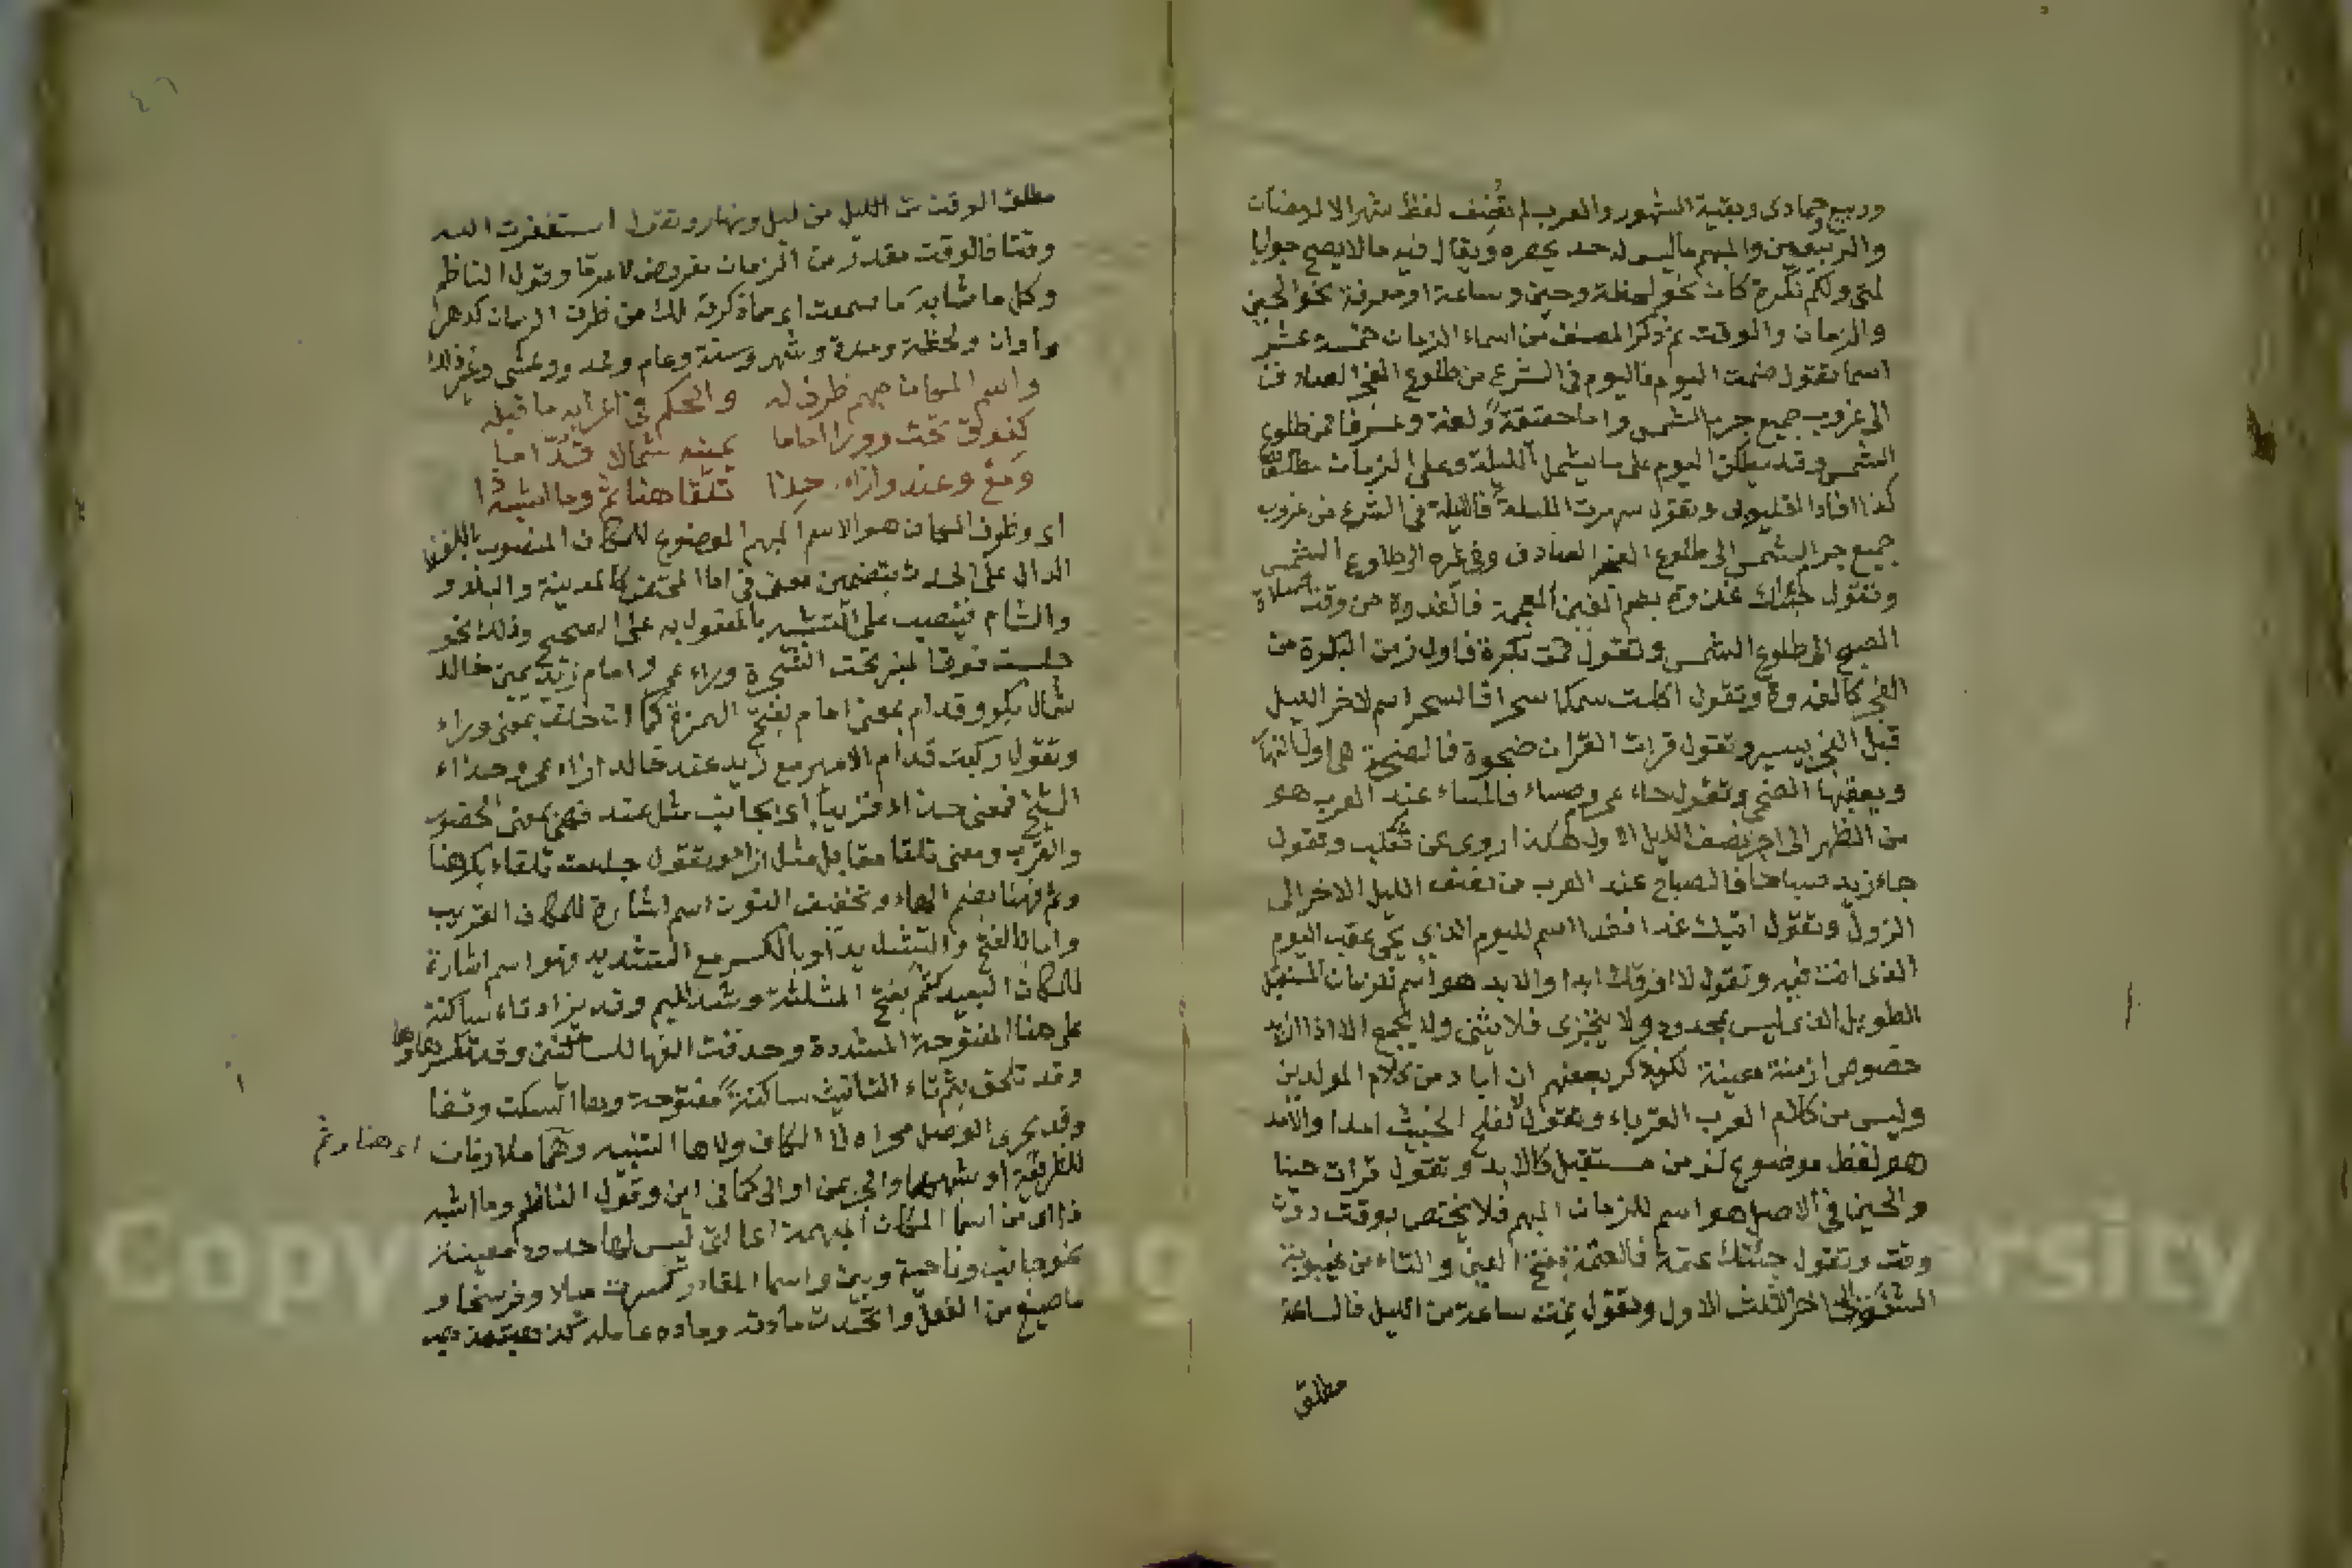 وربيع وجمادى وبقية الشهور والعرب لم تضف لفظ شهر الا لرمضان
والربيعين والمبهم ما ليس له حد يحصره ويقال فيه ما لا يصح جوابا
لمتى ولكم نكرة كان نحو لحظة وحين وساعة او معرفة نحو الحين
والزمان والوقت ثم ذكر المصنف من اسماء الزمان خمسة عشر
اسما تقول صمت اليوم فاليوم في الشرع من طلوع الفجر الصادق
الى غروب جميع جرم الشمس واما حقيقة ولغة وعرفا فمن طلوع
الشمس وقد يطلق اليوم على ما يشمل الليلة وعلى الزمان مطلقا
كذا افاد القليوبى وتقول سهرت الليلة فالليلة في الشرع من غروب
جميع جرم الشمس الى طلوع الفجر الصادق وفي غيره الى طلوع الشمس
وتقول جئتك غدوة بضم الغين المعجمة فالغدوة من وقت صلاة
الصبح الى طلوع الشمس وتقول قمت بكرة فاول زمن البكرة من
الفجر كالغدوة وتقول اكلت سمكا سحرا فالسحر اسم لاخر الليل
قبل الفجر بيسير وتقول قرات القران ضحوة فالضحوة هي اول النهار
ويعقبها الضحى وتقول جاء عمرو مساء فالمساء عند العرب هو
من الظهر الى اخر نصف الليل الاول هكذا روى عن ثعلب وتقول
جاء زيد صباحا فالصباح عند العرب من نصف الليل الاخر الى
الزول وتقول اتيك غدا فغدا اسم لليوم الذي يجي عقب اليوم
الذى انت فيه وتقول لا افرقك ابدا والابد هو اسم للزمان المستقبل
الطويل الذى ليس بمحدود ولا يتجزى فلا يثنى ولا يجمع الا اذا اريد
خصوص ازمنة معينة لكن ذكر بعضهم ان اباد من كلام المولدين
وليس من كلام العرب العرباء وتقول لا يفلح الخبيث امدا والامد
هو لفظ موضوع لزمن مستقبل كالابد وتقول قرات حينا
والحين في الاصل هو اسم للزمان المبهم فلا يختص بوقت دون
وقت وتقول جئتك عتمة فالعتمة بفتح العين والتاء من غيبوبة
الشفق الى اخر الثلث الاول وتقول نمت ساعة من الليل فالساعة
مطلق
مطلق الوقت من الليل من ليل ونهار وتقول استغفرت الله
وقتا فالوقت مقدار من الزمان مفروض لامر ما وقول الناظم
وكل ما شابه ما سمعت اى مما ذكرته لك من ظرف الزمان كدهرا
واوان ولحظة ومدة وشهر وسنة وعام وغدو وعشى وغير ذلك
واسم المكان مبهم ظرف له والحكم في اعرابه ما قبله
كفوق تحت وورا اماما يمينه شمال قداما
ومع وعند وازاء حذا تلقا هنا ثم وما اشبه ذا
اى وظرف المكان هو الاسم المبهم الموضوع للمكان المنصوب باللفظ
الدال على الحدث بتضمين معنى في اما المختص كالمدينة والبلد و
والشام فينصب على التشبيه بالمفعول به على الصحيح وذلك نحو
جلست فوق المنبر تحت الشجرة وراء عمرو امام زيد يمين خالد
شمال بكر وقدام بمعنى امام بفتح الهمزة كما ان خلف بمعنى وراء
وتقول ركبت قدام الامير مع زيد عند خالد ازاء عمرو حذاء
الشيخ فمعنى حذاء قريبا اى بجانب مثل عند فهي بمعنى الحضور
والقرب ومعنى تلقا مقابل مثل ازاء وتقول جلست تلقاء بكر هنا
وثم فهنا بضم الهاء وتخفيف النون اسم اشارة للمكان القريب
واما بالفتح والتشديد او بالكسر مع التشديد فهو اسم اشارة
للمكان البعيد كثم بفتح المثلثة وشد الميم وقد يزاد تاء ساكنة
على هنا المفتوحة المشددة وحذفت الفها للساكنين وقد تكسر هاوها
وقد تلحق بثم تاء التانيث ساكنة ومفتوحة وها السكت وقفا
وقد يجرى الوصل مجراه لا الكاف ولا ها التنبيه وهما ملازمان اى هنا وثم
للظرفية او شبهها والجر بمن او الى كما في اين وقول الناظم وما اشبه
ذا اى من اسما المكان المبهمة اعا التى ليس لها حدود معينة
نحو جانب وناحية وبين واسما المقادر كسرت ميلا وفرسخا و
ما صيغ من الفعل واتحدت مادته وماده عامله